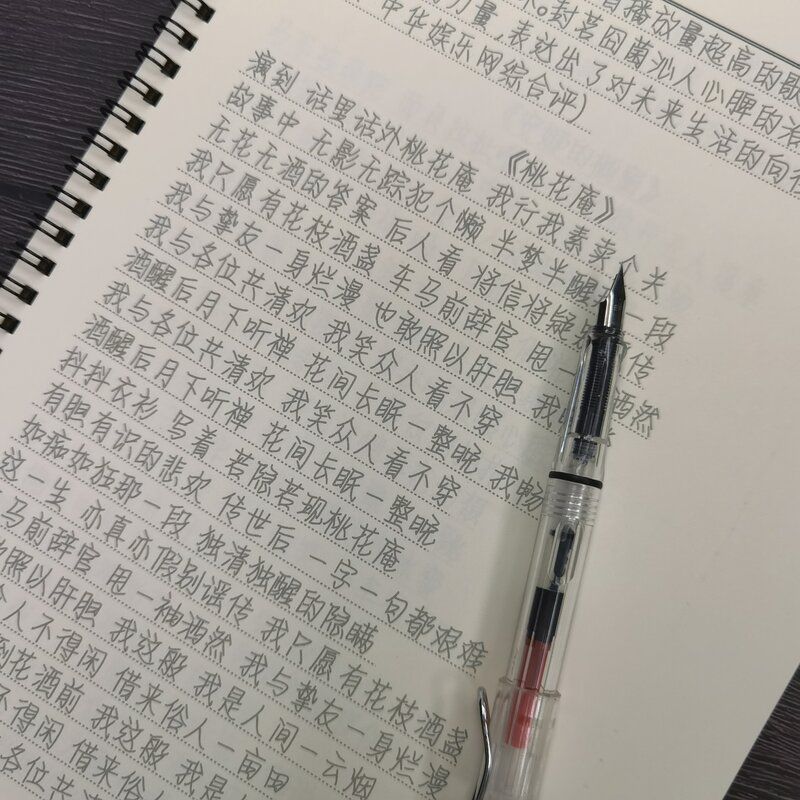 首播放量超高的歌
封茗囧菌沁人心脾的治
力量,表达出了对未来生活的向往
中华娱乐网综合评)
《桃花庵》
演到 话里话外桃花庵 我行我素卖个关
故事中 无影无踪犯个懒 半梦半醒 一段
无花无酒的答案 后人看 将信将疑 传
我只愿有花枝酒盏 车马前辞官 甩一 洒然
我与挚友一身烂漫 也敢照以肝胆 我
我与各位共清欢 我笑众人看不穿
酒醒后月下听禅 花间长眠一整晚 我畅
我与各位共清欢 我笑众人看不穿
酒醒后月下听禅 花间长眠一整晚
抖抖衣衫 写着 若隐若现桃花庵
有胆有识的悲欢 传世后 一字一句都艰难
如痴如狂那一段 独清独醒的隐瞒
这一生 亦真亦假别谣传 我只愿有花枝酒盏
马前辞官 甩一袖洒然 我与挚友一身烂漫
照以肝胆 我这般 我是人间一云烟
人不得闲 借来俗人一亩田
到花酒前 我这般 我是
不得闲 借来俗人
各位共清